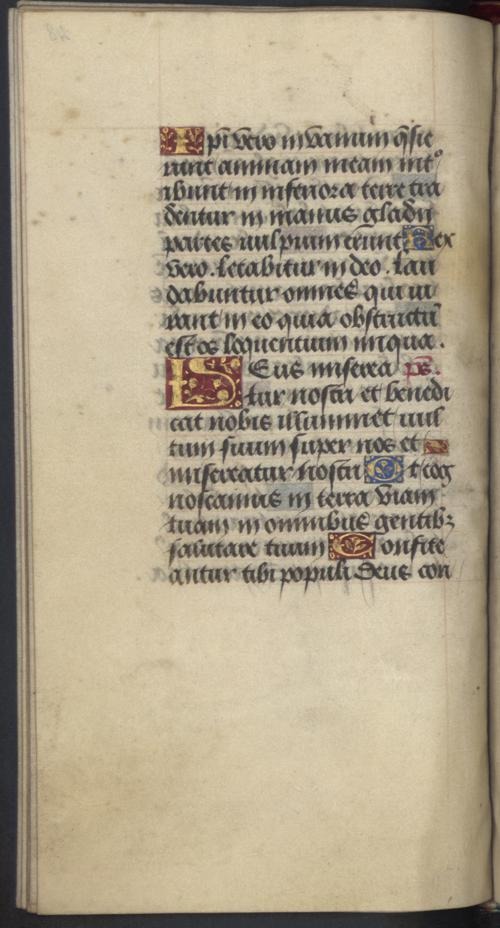 Ipi vero in vanum q̄sie
runt animam meam intͦ
ibunt in inferiora terre tra
dentur in manus gladii
partes vulpium erunt Rex
vero letabitur in deo. lau
dabuntur omnes qui iu
rant in eo quia obstructū
est os loquentium iniqua.
DEus miserea ps.
tur nostri et benedi
cat nobis illuminet vul
tum suum super nos et
misereatur nostri Vt cog
noscamus in terra viam
tuam in omnibus gentibꝫ
salutare tuum Confite
antur tibi populi deus con